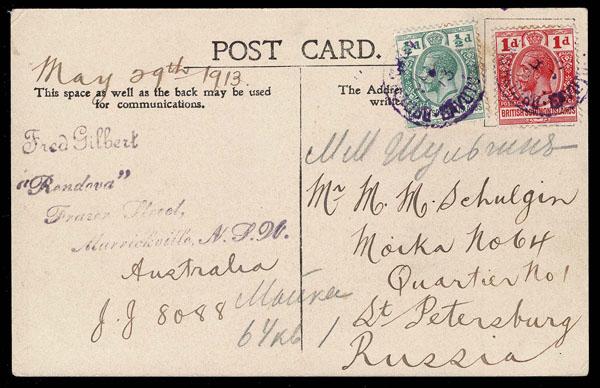 POST CARD.
½d ½d
1d 1d
BRITISH SOLOMON ISLANDS
May 29th 1913.
This space as well as the back may be used
for communications.
The Addres
writte
Fred Gilbert
"Rendova"
Frazer Street,
Marrickville, N.S.W.
Australia
J.J 8088
М М Шульгинъ
Mr M. M. Schulgin
Moika No 64
Quartier No 1
St Petersburg
Russia
Мойка
64 кв 1